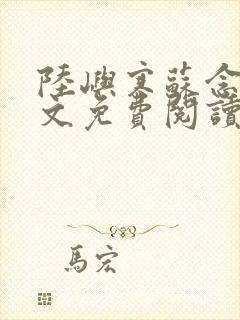 陸嶼寒蘇念
文免費閱讀
馬宏